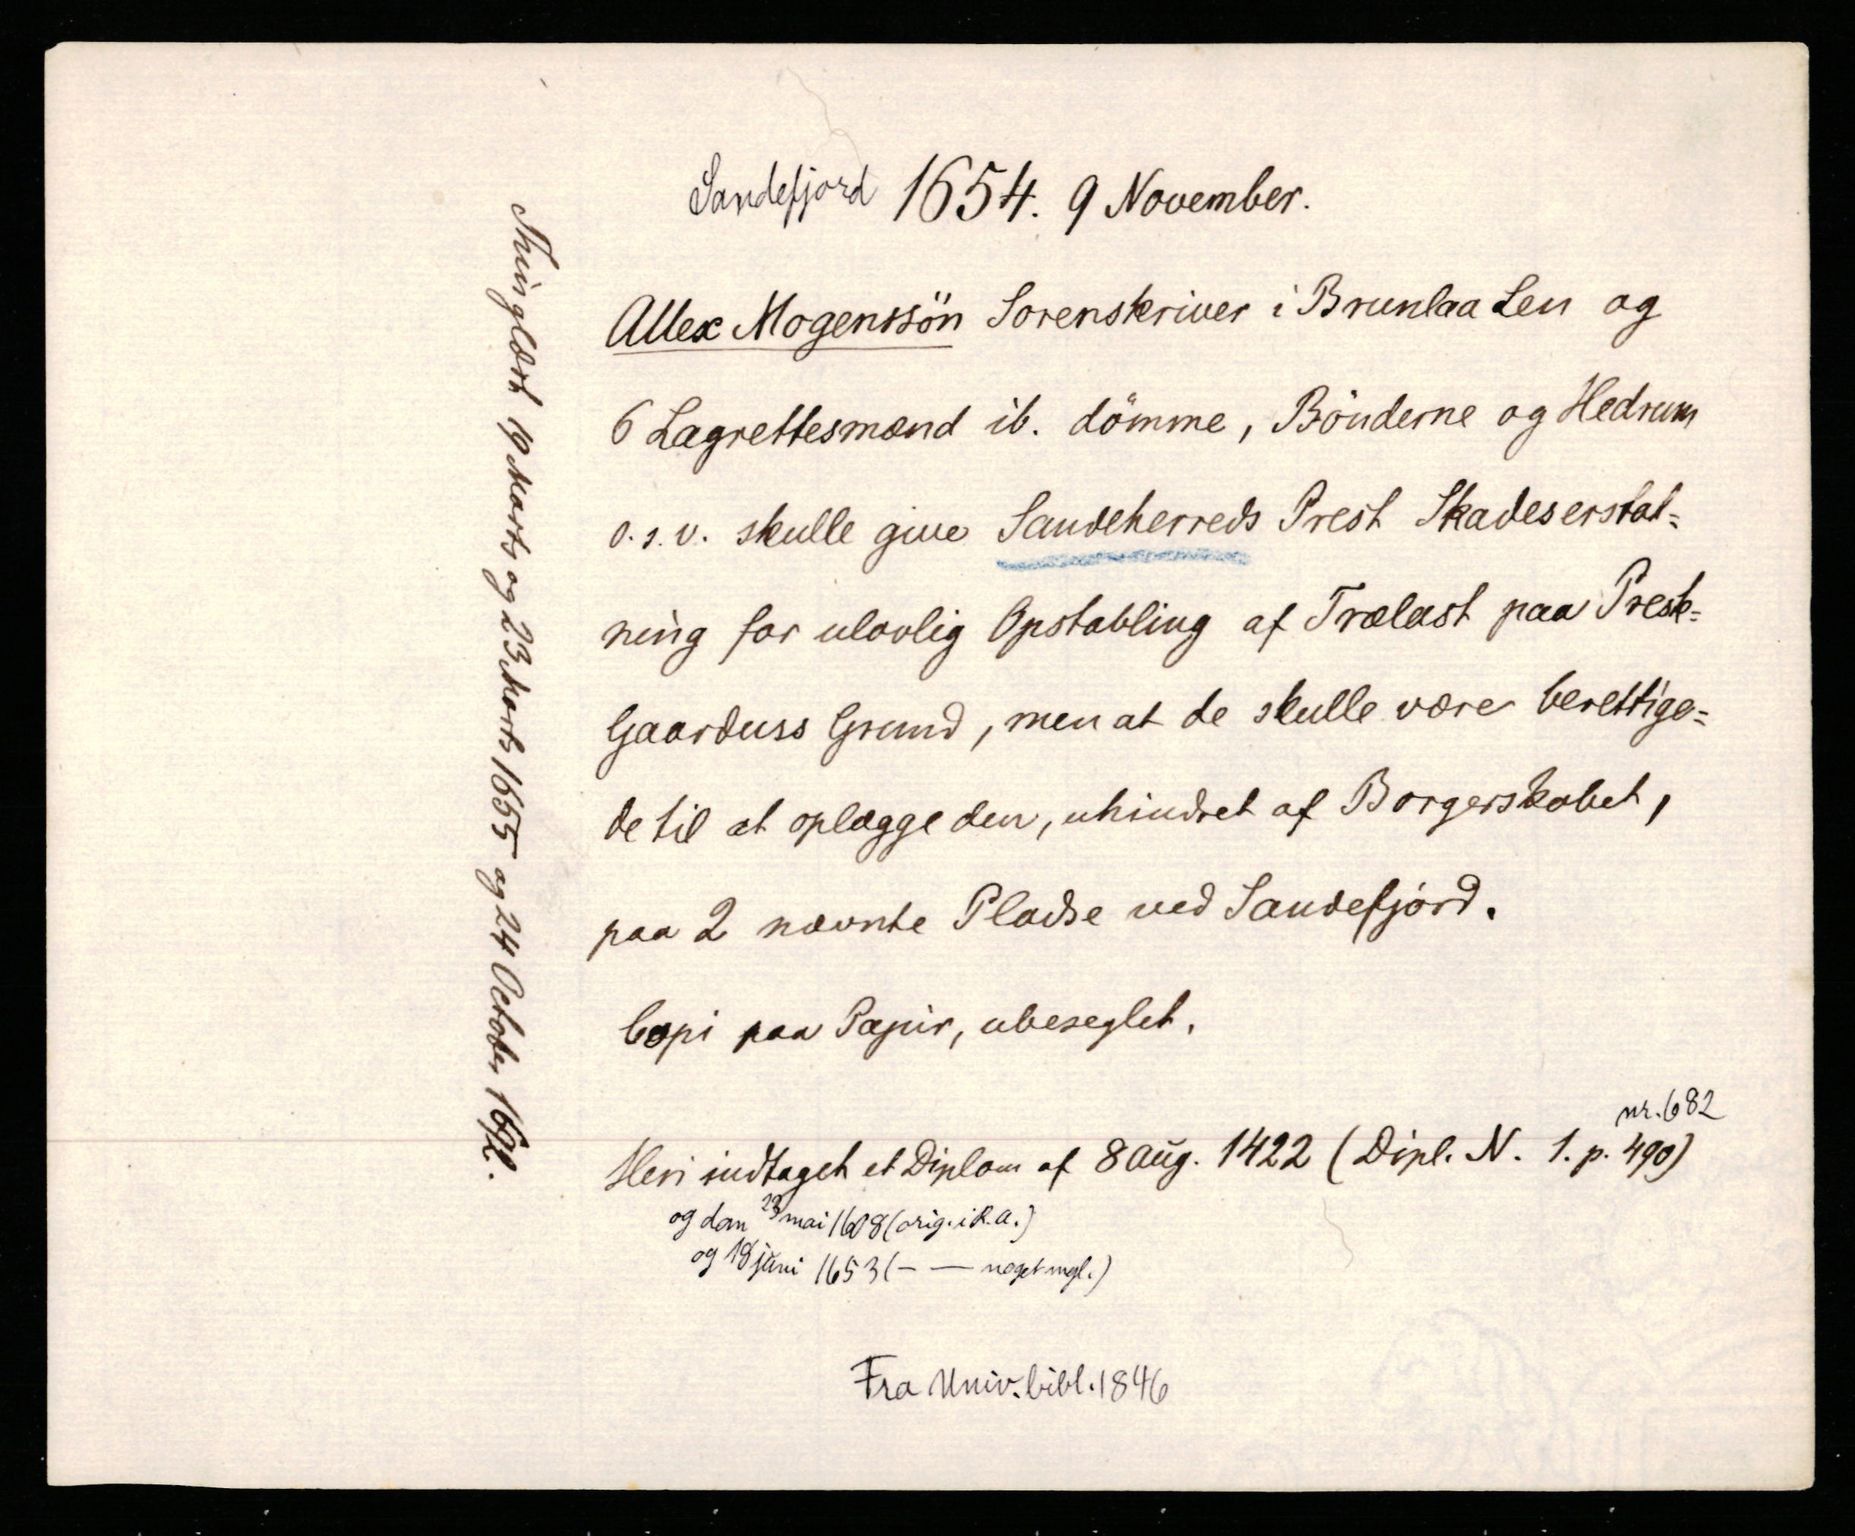 Sandefjord 1654. 9 November.
Allex Mogenssön Sorenskriver i Brunlaa Len og
6 Lagrettesmænd ib. dömme, Bönderne og Hedrum
o.s.v. skulle give Sandeherreds Prest Skadeserstat=
ning for ulovlig Opstabling af Trælast paa Prest=
Gaardens Grund, men at de skulle være berettige=
de til at oplægge den, uhindret af Borgerskabet,
paa 2 nævnte Pladse ved Sandefjord.
Copi paa Papir, ubeseglet.
Heri indtaget et Diplom af 8 Aug. 1422 (Dipl. N. 1. p. 490)
nr. 682
og dom 23 mai 1608 (orig. i R.A.)
og 18 juni 1653 (— — noget mgl.)
Fra Univ.bibl. 1846
Thinglæst 19 Marts og 23 Marts 1655 og 24 October